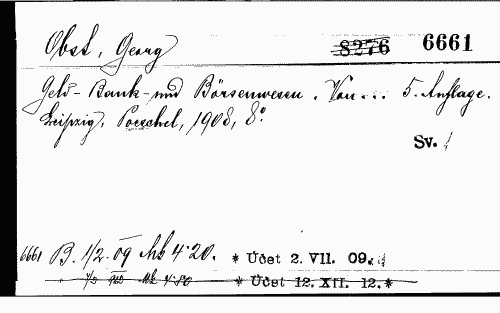 Obst, Georg 8276 6661
Geld- Bank- und Börsenwesen. Von... 5. Auflage.
Leipzig, Poeschel, 1908, 8°.
Sv.
6661 B. 1/2. 09 Mk 4·20. * Účet 2. VII. 09.
* Účet 12. XII. 12. *